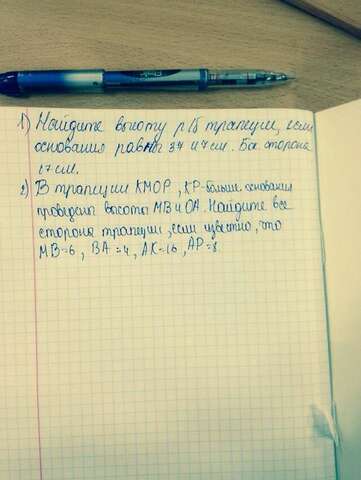 1) Найдите высоту р/б трапеции, если
основания равны 3 и 7 см. Бок сторона
17 см.
2) В трапеции КМОР, КР-больше основания
проведены высоты МВ и ОА. Найдите все
стороны трапеции, если известно, что
МВ=6, ВА=4, АК=16, АР=8.